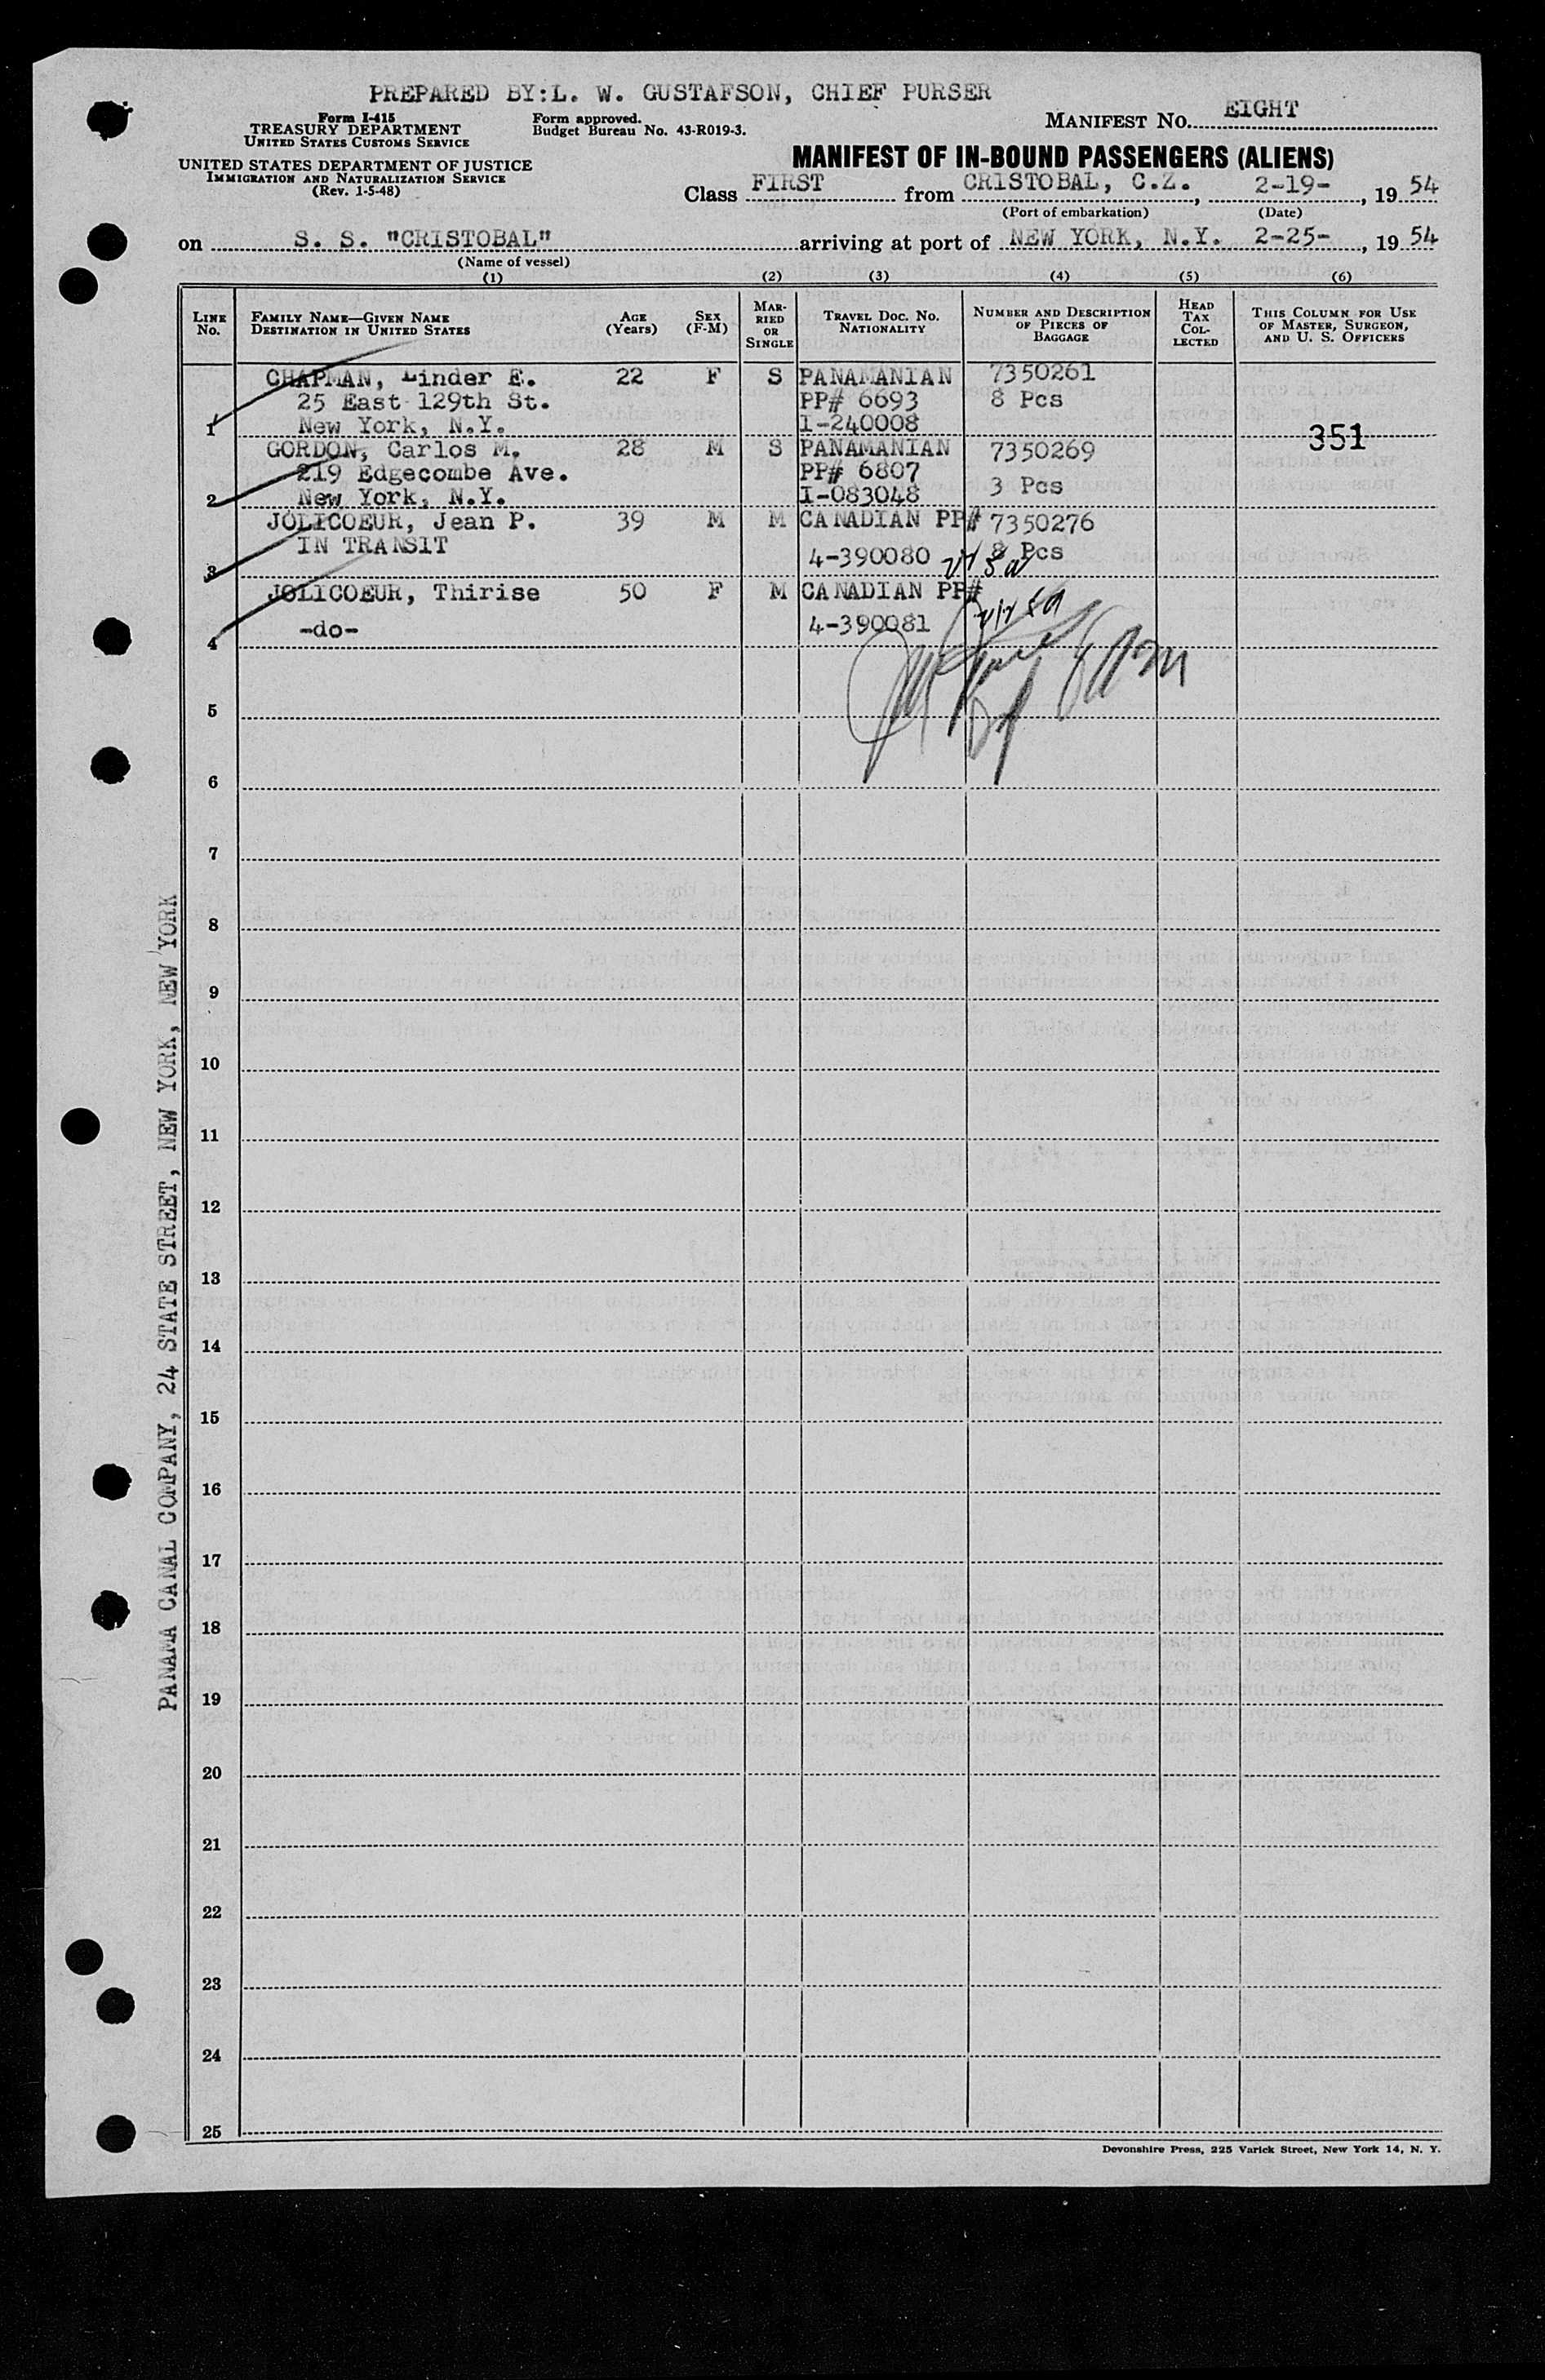 PREPARED BY:L. W. GUSTAFSON, CHIEF PURSER
Form I-415
TREASURY DEPARTMENT
UNITED STATES CUSTOMS SERVICE
UNITED STATES DEPARTMENT OF JUSTICE
IMMIGRATION AND NATURALIZATION SERVICE
(Rev. 1-5-48)
Form approved.
Budget Bureau No. 43-R019-3.
MANIFEST NO. EIGHT
MANIFEST OF IN-BOUND PASSENGERS (ALIENS)
Class FIRST from CRISTOBAL, C.Z. , 2-19- , 19 54
(Port of embarkation) (Date)
on S. S. "CRISTOBAL" arriving at port of NEW YORK, N.Y. 2-25- , 19 54
(Name of vessel)
(1) (2) (3) (4) (5) (6)
LINE NO. FAMILY NAME—GIVEN NAME DESTINATION IN UNITED STATES AGE (YEARS) SEX (F-M) MARRIED OR SINGLE TRAVEL DOC. NO. NATIONALITY NUMBER AND DESCRIPTION OF PIECES OF BAGGAGE HEAD TAX COLLECTED THIS COLUMN FOR USE OF MASTER, SURGEON, AND U. S. OFFICERS
CHAPMAN, Linder E. 22 F S PANAMANIAN 7350261
25 East 129th St. PP# 6693 8 Pcs
1 New York, N.Y. I-240008
351
GORDON, Carlos M. 28 M S PANAMANIAN 7350269
219 Edgecombe Ave. PP# 6807
2 New York, N.Y. I-083048 3 Pcs
JOLICOEUR, Jean P. 39 M M CANADIAN PP# 7350276
IN TRANSIT
3 4-390080 8 Pcs
JOLICOEUR, Thirise 50 F M CANADIAN PP#
4 -do- 4-390081
5
6
7
8
9
10
11
12
13
14
15
16
17
18
19
20
21
22
23
24
25
PANAMA CANAL COMPANY, 24 STATE STREET, NEW YORK, NEW YORK
Devonshire Press, 225 Varick Street, New York 14, N. Y.